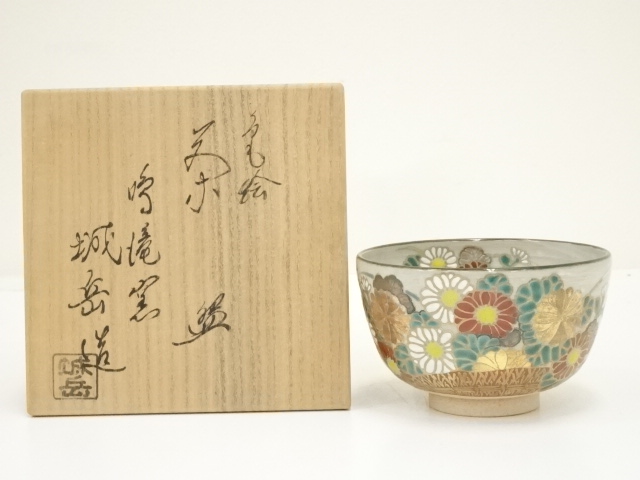 色絵
茶
盌
鳴滝窯
城岳造
城岳